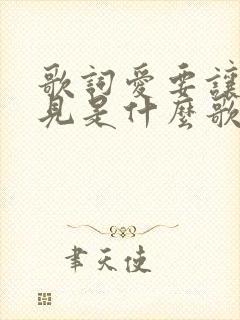 歌詞愛要讓
見是什麼歌
聿天使